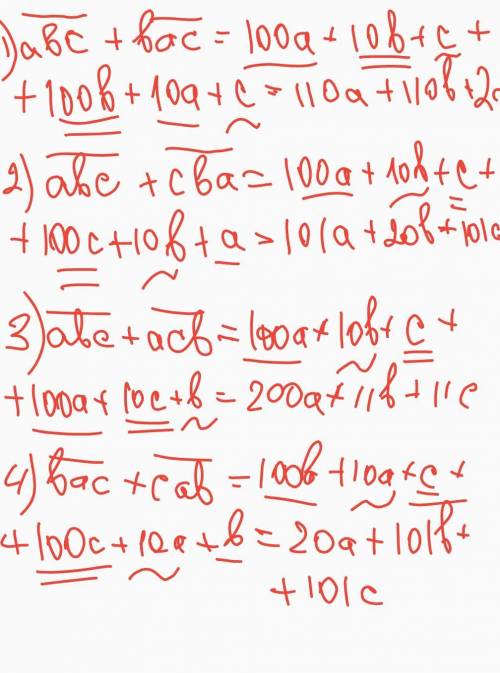 1) a̅b̅c̅ + b̅a̅c̅ = 100a + 10b + c +
+ 100b + 10a + c = 110a + 110b + 2c
2) a̅b̅c̅ + c̅b̅a̅ = 100a + 10b + c +
+ 100c + 10b + a = 101a + 20b + 101c
3) a̅b̅c̅ + a̅c̅b̅ = 100a + 10b + c +
+ 100a + 10c + b = 200a + 11b + 11c
4) b̅a̅c̅ + c̅a̅b̅ = 100b + 10a + c +
+ 100c + 10a + b = 20a + 101b +
+ 101c